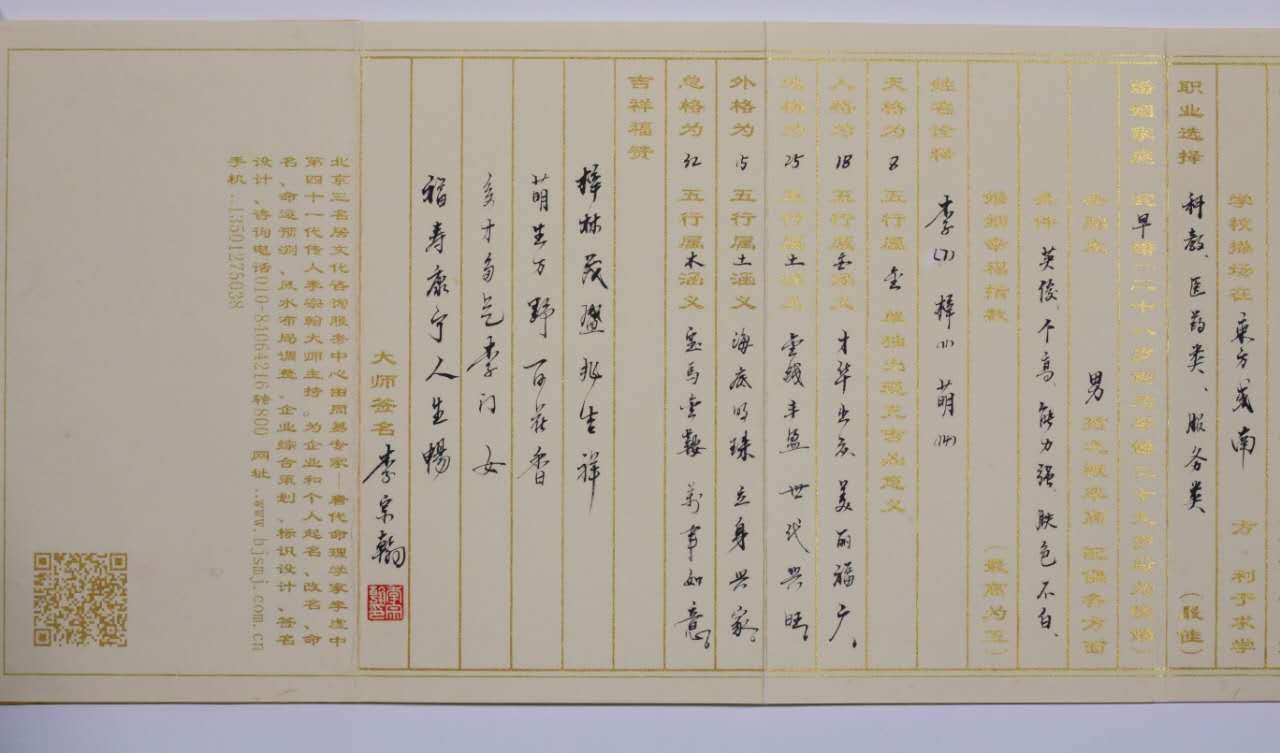 学校操场在 东方或南 方 利于求学
职业选择 科教、医药类、服务类 (最佳)
婚姻家庭 早婚二十八岁
男
条件 英俊、个高、能力强、肤色不白、
婚姻幸福指数 (最高为五)
姓名诠释 李(7) 梓(11) 萌(14)
天格为 8 五行属 金 单独出现无吉凶意义
人格为 18 五行属金涵义 才华出众 美丽福广,
地格为 25 五行属土涵义 金钱丰盈 世代兴旺,
外格为 15 五行属土涵义 海底明珠 立身兴家,
总格为 32 五行属木涵义 宝马金鞍 万事如意,
吉祥福赞
梓林茂盛兆吉祥
萌生万野百花香
多才多艺李门女
福寿康宁人生畅
大师签名 李宗翰
北京三名居文化咨询服务中心由周易专家—唐代命理学家李虚中
第四十一代传人李宗翰大师主持。为企业和个人起名、改名、命
名、命运预测、风水布局调整、企业综合策划、标识设计、签名
设计、咨询电话010-84064216转800 网址:www.bjsmj.com.cn
手机:13501275038